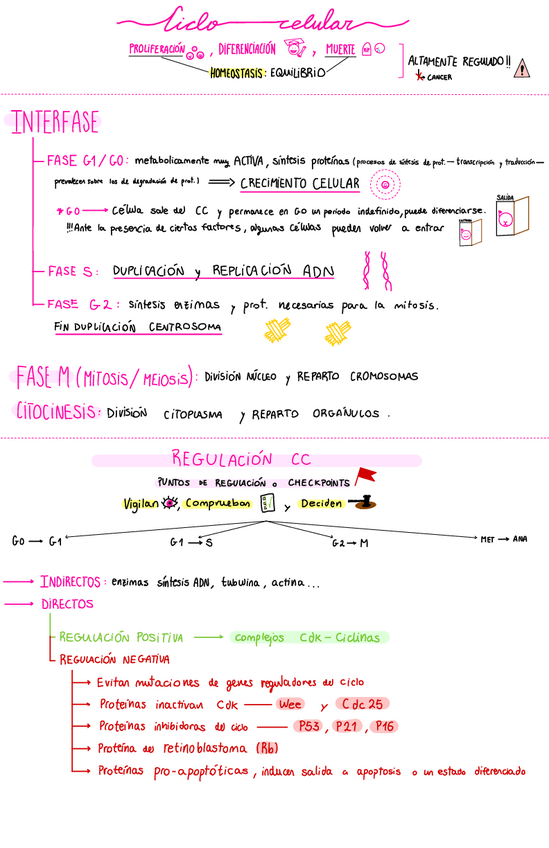 Ciclo celular
PROLIFERACIÓN, DIFERENCIACIÓN, MUERTE
HOMEOSTASIS: EQUILIBRIO
ALTAMENTE REGULADO!!
CANCER
INTERFASE
FASE G1/G0: metabolicamente muy ACTIVA, síntesis proteínas (procesos de síntesis de prot. — transcripción y traducción —
prevalecen sobre los de degradación de prot.) ⟹ CRECIMIENTO CELULAR
* G0 → Célula sale del CC y permanece en G0 un período indefinido, puede diferenciarse.
SALIDA
!!! Ante la presencia de ciertos factores, algunas células pueden volver a entrar
FASE S: DUPLICACIÓN y REPLICACIÓN ADN
FASE G2: síntesis enzimas y prot. necesarias para la mitosis.
FIN DUPLICACIÓN CENTROSOMA
FASE M (MITOSIS/MEIOSIS): DIVISIÓN NÚCLEO y REPARTO CROMOSOMAS
CITOCINESIS: DIVISIÓN CITOPLASMA y REPARTO ORGÁNULOS.
REGULACIÓN CC
PUNTOS DE REGULACIÓN o CHECKPOINTS
Vigilan, Comprueban y Deciden
G0 → G1 G1 → S G2 → M MET → ANA
→ INDIRECTOS: enzimas síntesis ADN, tubulina, actina...
→ DIRECTOS
REGULACIÓN POSITIVA → complejos Cdk-Ciclinas
REGULACIÓN NEGATIVA
→ Evitan mutaciones de genes reguladores del ciclo
→ Proteínas inactivan Cdk — Wee y Cdc25
→ Proteínas inhibidoras del ciclo — P53, P21, P16
→ Proteína del retinoblastoma (Rb)
→ Proteínas pro-apoptóticas, inducen salida a apoptosis o un estado diferenciado